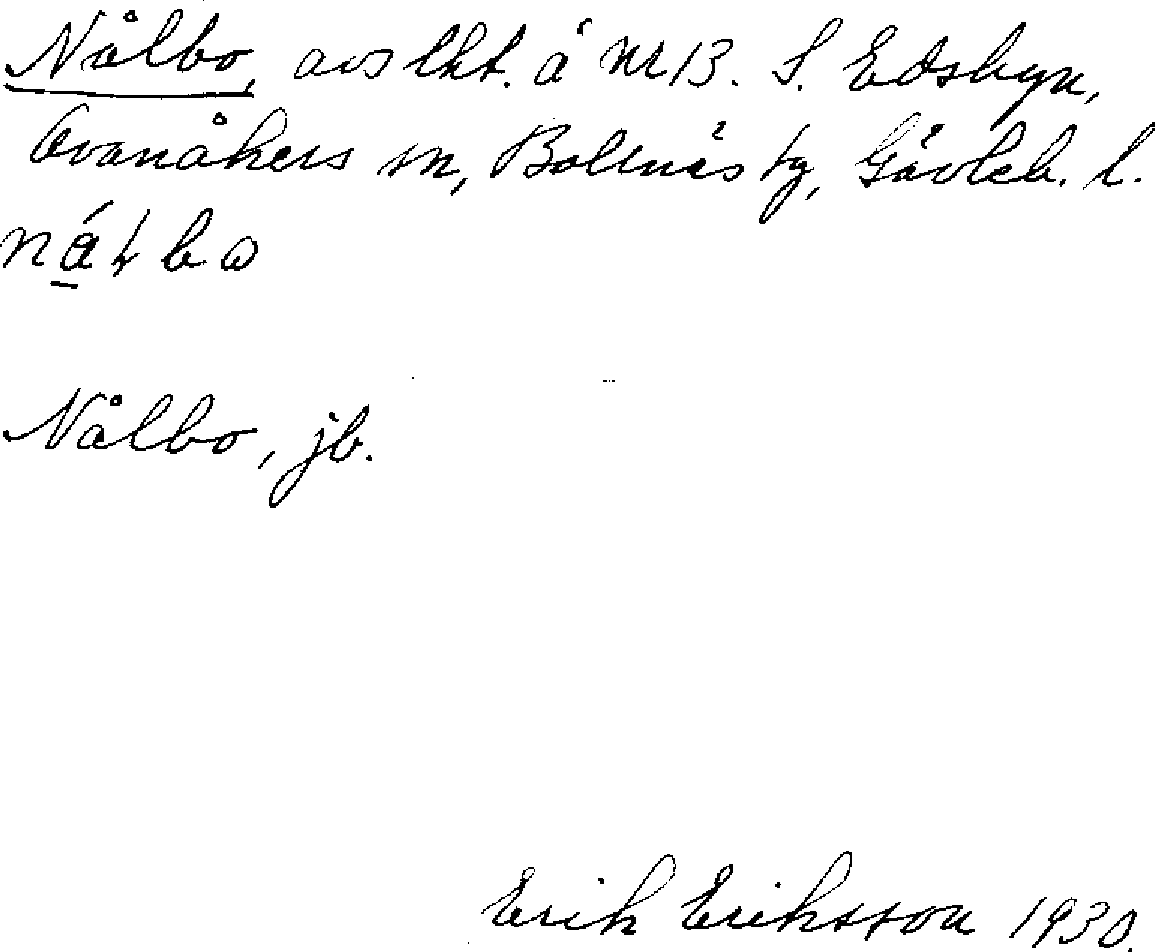 Nålbo, avs lht. å nr 13. S. Edsbyn,
Ovanåkers sn, Bollnäs tg, Gävleb. l.
Nålbo, jb.
Erik Eriksson 1930.